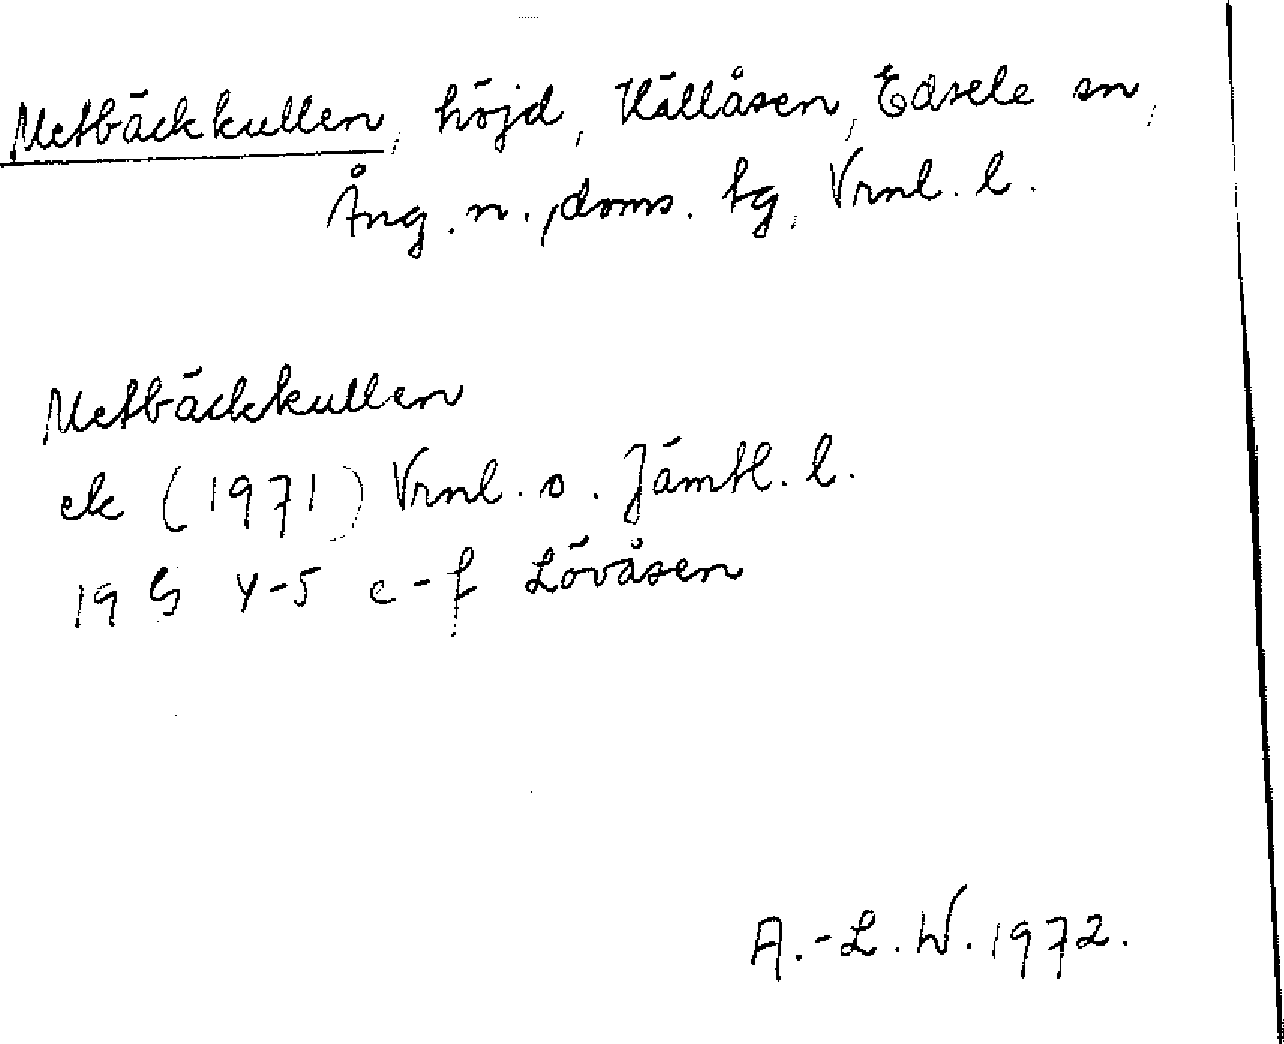 Metbäckkullen, höjd, Källåsen, Edsele sn,
Ång. n., doms. tg, Vrnl. l.
Metbäckkullen
ek (1971) Vrnl. o. Jämtl. l.
19 G 4-5 e-f Lövåsen
A.-L. W. 1972.